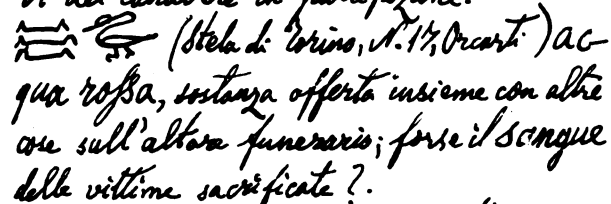 (Stela di Torino, N. 17, Orcurti) ac-
qua rossa, sostanza offerta insieme con altre
cose sull'altare funerario; forse il sangue
delle vittime sacrificate?.